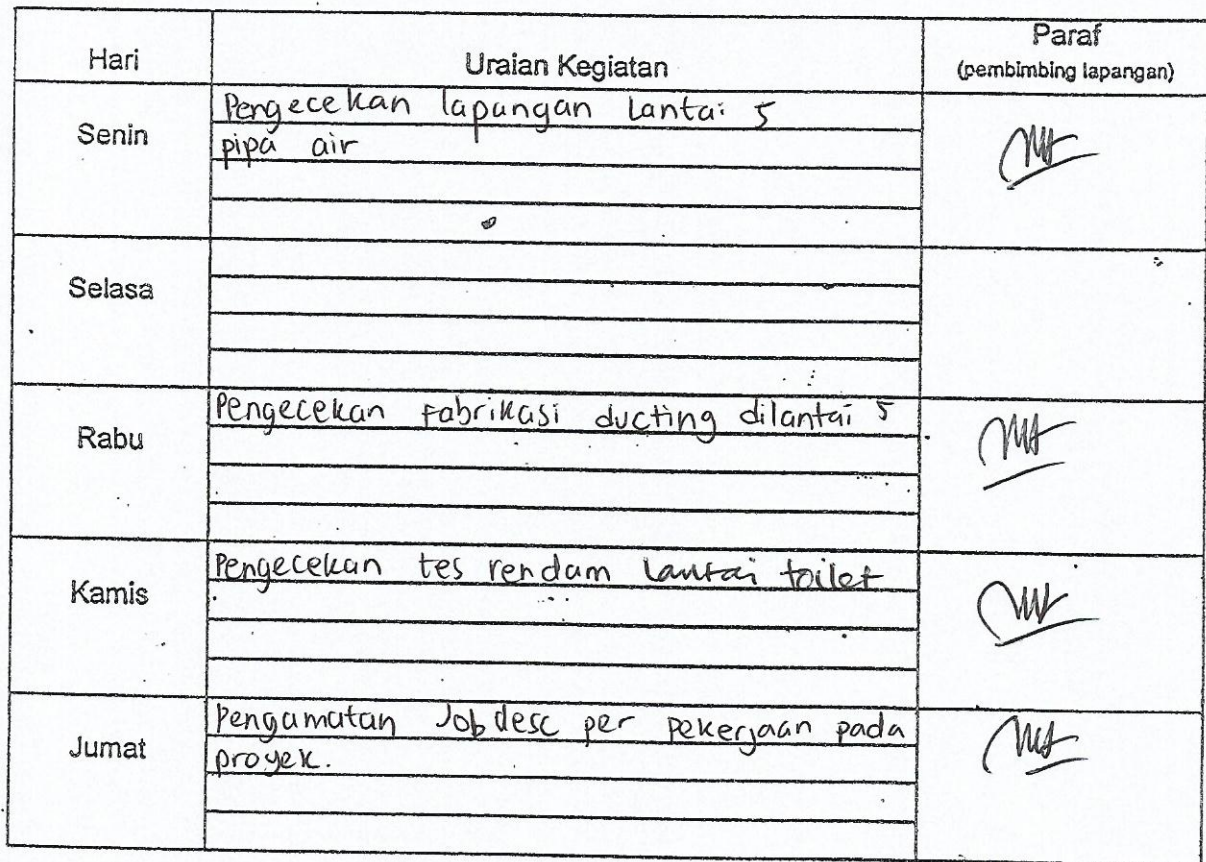 Hari Uraian Kegiatan Paraf
(pembimbing lapangan)
Senin Pengecekan lapangan lantai 5
pipa air
Selasa
Rabu Pengecekan Fabrikasi ducting dilantai 5
Kamis Pengecekan tes rendam lantai toilet
Jumat Pengamatan Jobdesc per pekerjaan pada
proyek.